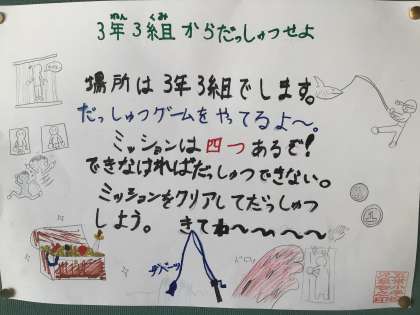 3年3組からだっしゅつせよ
ねん くみ
場所は3年3組でします。
だっしゅつゲームをやってるよ〜。
ミッションは四つあるぞ!
できなければだっしゅつできない。
ミッションをクリアしてだっしゅつ
しよう。 きてね〜〜〜〜